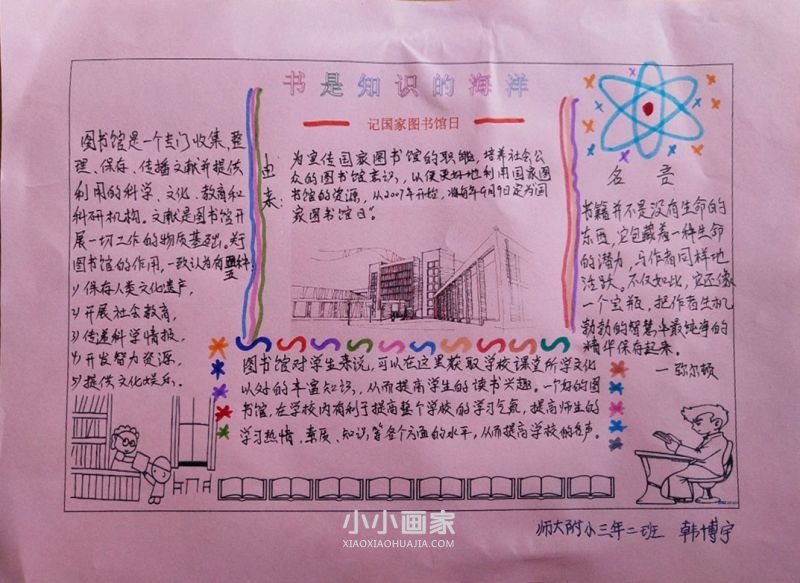 书是知识的海洋
记国家图书馆日
图书馆是一个专门收集、整
理、保存、传播文献并提供
利用的科学、文化、教育和
科研机构。文献是图书馆开
展一切工作的物质基础。关于
图书馆的作用,一致认为有五种:
1)保存人类文化遗产,
2)开展社会教育,
3)传递科学情报,
4)开发智力资源,
5)提供文化娱乐。
由来:
为宣传国家图书馆的职能,培养社会公
众的图书馆意识,以便更好地利用国家图
书馆的资源,从2007年开始,将每年9月9日定为国
家图书馆日。
名言
书籍并不是没有生命的
东西,它包藏着一种生命
的潜力,与作者同样地
活跃。不仅如此,它还像
一个宝瓶,把作者生机
勃勃的智慧中最纯净的
精华保存起来。
—弥尔顿
图书馆对学生来说,可以在这里获取学校课堂所学文化
以外的丰富知识,从而提高学生的读书兴趣。一个好的图
书馆,在学校内有利于提高整个学校的学习气氛,提高师生的
学习热情、素质、知识等各个方面的水平,从而提高学校的名声。
小小画家
XIAOXIAOHUAJIA.COM
师大附小三年二班 韩博宇